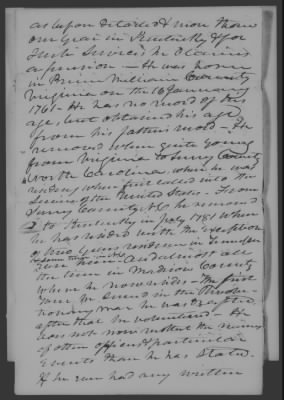 as upon detailed & more than
one year in Kentucky & for
such services he claims
a pension — He was born
in Prince William County
Virginia on the 16 January
1761 — He has no record of his
age but obtained his age
from his fathers record — He
removed when quite young
from Virginia to Surry County
North Carolina, where he was
residing when first called into the
Service of the United States — From
Surry County, N.C. he removed
to Kentucky in July 1781 where
he has resided with the exception
of two years residence in
ever since — And almost all
the time in Madison County
where he now resides — The first
Tour he served in the
war he was drafted
after that he volunteered — He
does not now recollect the names
of other officers & particular
events than he has stated.
If he ever had any written